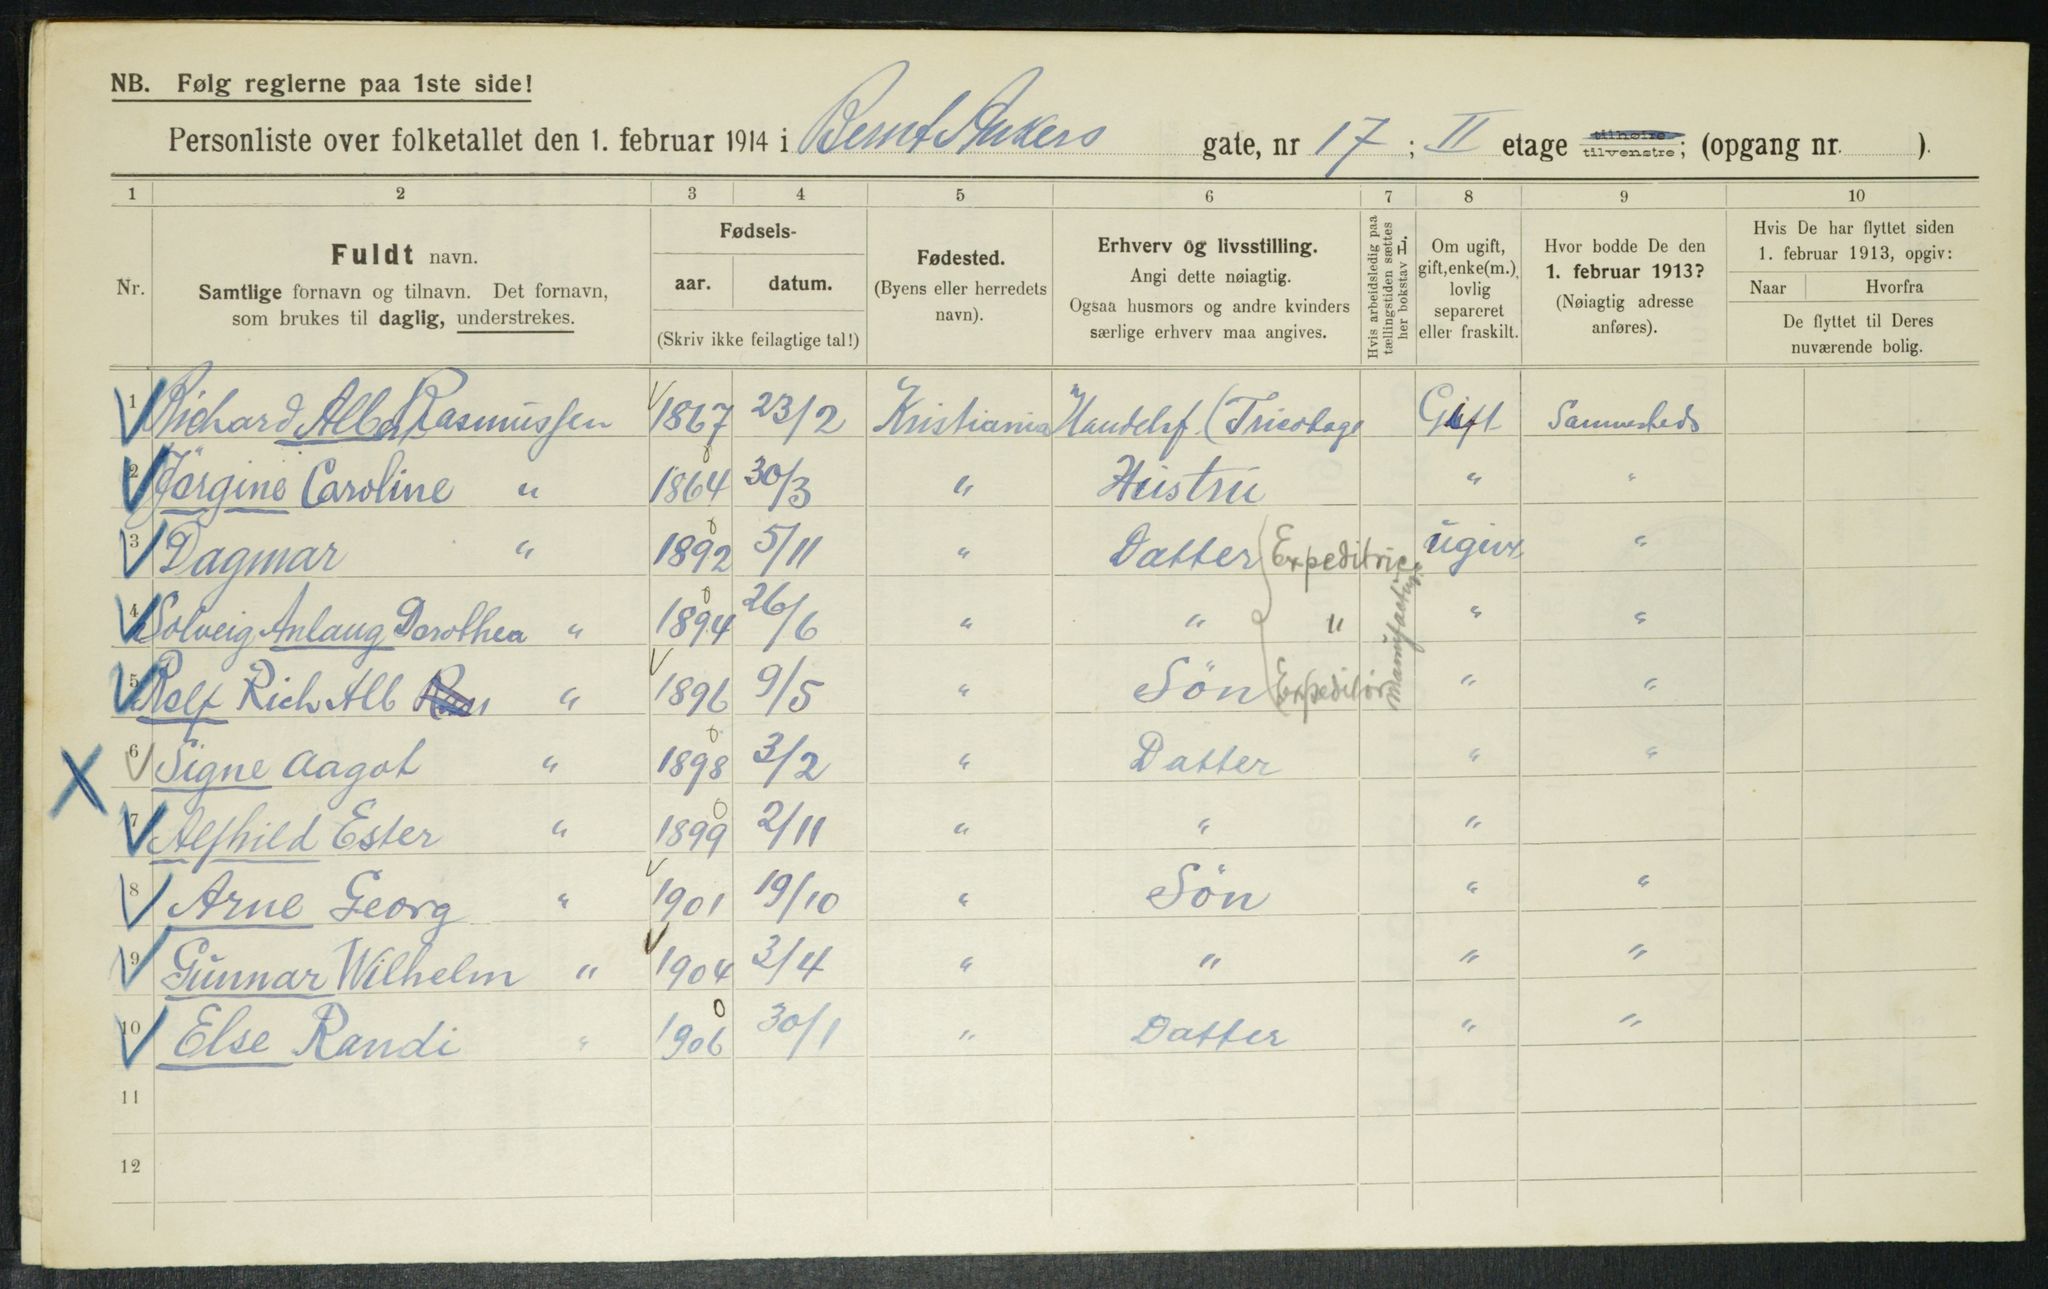 NB. Følg reglerne paa 1ste side!
Personliste over folketallet den 1. februar 1914 i Bernt Ankers gate, nr 17 ; II etage tilhøire tilvenstre; (opgang nr. ).
1 2 3 4 5 6 7 8 9 10
Nr.
Fuldt navn.
Samtlige fornavn og tilnavn. Det fornavn,
som brukes til daglig, understrekes.
Fødsels-
aar. datum.
(Skriv ikke feilagtige tal!)
Fødested.
(Byens eller herredets
navn).
Erhverv og livsstilling.
Angi dette nøiagtig.
Ogsaa husmors og andre kvinders
særlige erhverv maa angives.
Hvis arbeidsledig paa
tællingstiden sættes
her bokstav L.
Om ugift,
gift, enke(m.),
lovlig
separeret
eller fraskilt.
Hvor bodde De den
1. februar 1913?
(Nøiagtig adresse
anføres).
Hvis De har flyttet siden
1. februar 1913, opgiv:
Naar Hvorfra
De flyttet til Deres
nuværende bolig.
1 Richard Alb. Rasmussen 1867 23/2 Kristiania Handelsf. (Tricotage Gift Sammesteds
2 Jörgine Caroline " 1864 30/3 " Hustru " "
3 Dagmar " 1892 5/11 " Datter Expeditrice ugivt "
4 Solveig Anlaug Dorothea " 1894 26/6 " " " " "
5 Rolf Rich Alb Ras " 1896 9/5 " Sön Expeditør " "
manufactur
6 Signe Aagot " 1898 3/2 " Datter " "
7 Alfhild Ester " 1899 2/11 " " "
8 Arne Georg " 1901 19/10 " Sön " "
9 Gunnar Wilhelm " 1904 3/4 " " " "
10 Else Randi " 1906 30/1 " Datter " "
11
12